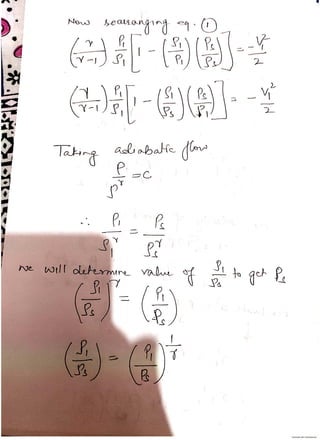 Now rearranging eq. ①
(γ/γ-1) P₁/ρ₁ [1 - (ρ₁/P₁)(Ps/ρs)] = -V₁²/2
(γ/γ-1) P₁/ρ₁ [1 - (ρ₁/ρs)(Ps/P₁)] = - V₁²/2
Taking adiabatic flow
P/ρ^γ = C
∴ P₁/ρ₁^γ = Ps/ρs^γ
we will determine value of ρ₁/ρs to get Ps
(ρ₁/ρs)^γ = (P₁/Ps)
(ρ₁/ρs) = (P₁/Ps)^1/γ